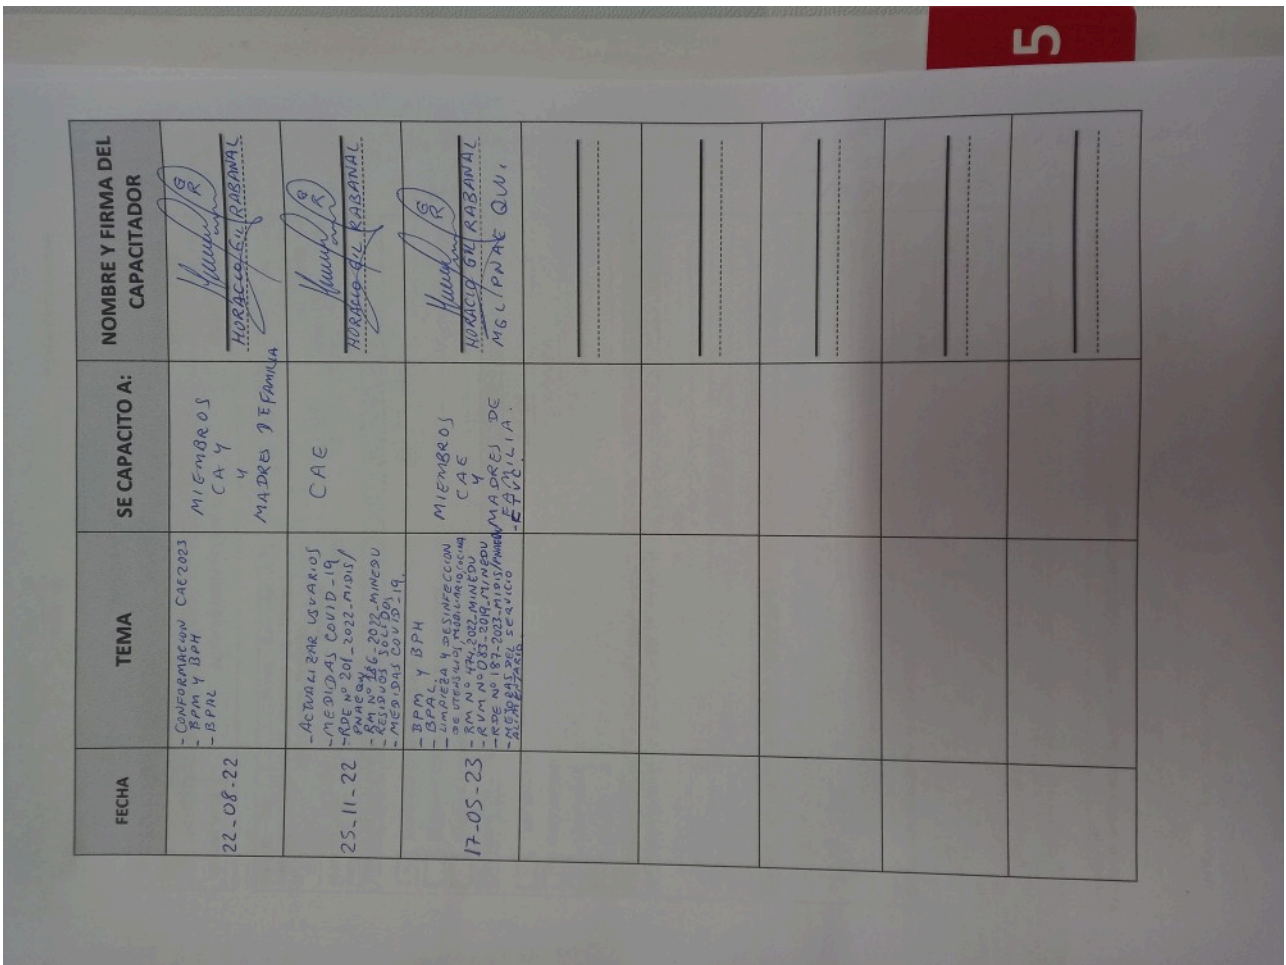 5
FECHA
TEMA
SE CAPACITO A:
NOMBRE Y FIRMA DEL
CAPACITADOR
22-08-22
- CONFORMACION CAE 2023
- BPM Y BPH
- BPAL
MIEMBROS
CAY
Y
MADRES DE FAMILIA
GR
HORACIO GIL RABANAL
25-11-22
- ACTUALIZAR USUARIOS
- MEDIDAS COVID-19
- RDE N° 201-2022-MIDIS/
PNAEQW
- RM N° 186-2022-MINEDU
- RESIDUOS SOLIDOS
- MEDIDAS COVID-19.
CAE
GR
HORACIO GIL RABANAL
17-05-23
- BPM Y BPH
- BPAL.
- LIMPIEZA Y DESINFECCION
DE UTENSILIOS, MOBILIARIO, COCINA
- RM N° 474-2022-MINEDU
- RVM N° 083-2019-MINEDU
- RDE N° 187-2023-MIDIS/PNAEQW
- MEJORAS DEL SERVICIO
ALIMENTARIO
MIEMBROS
CAE
Y
MADRES DE
FAMILIA.
GR
HORACIO GIL RABANAL
MGL/PNAE QW.